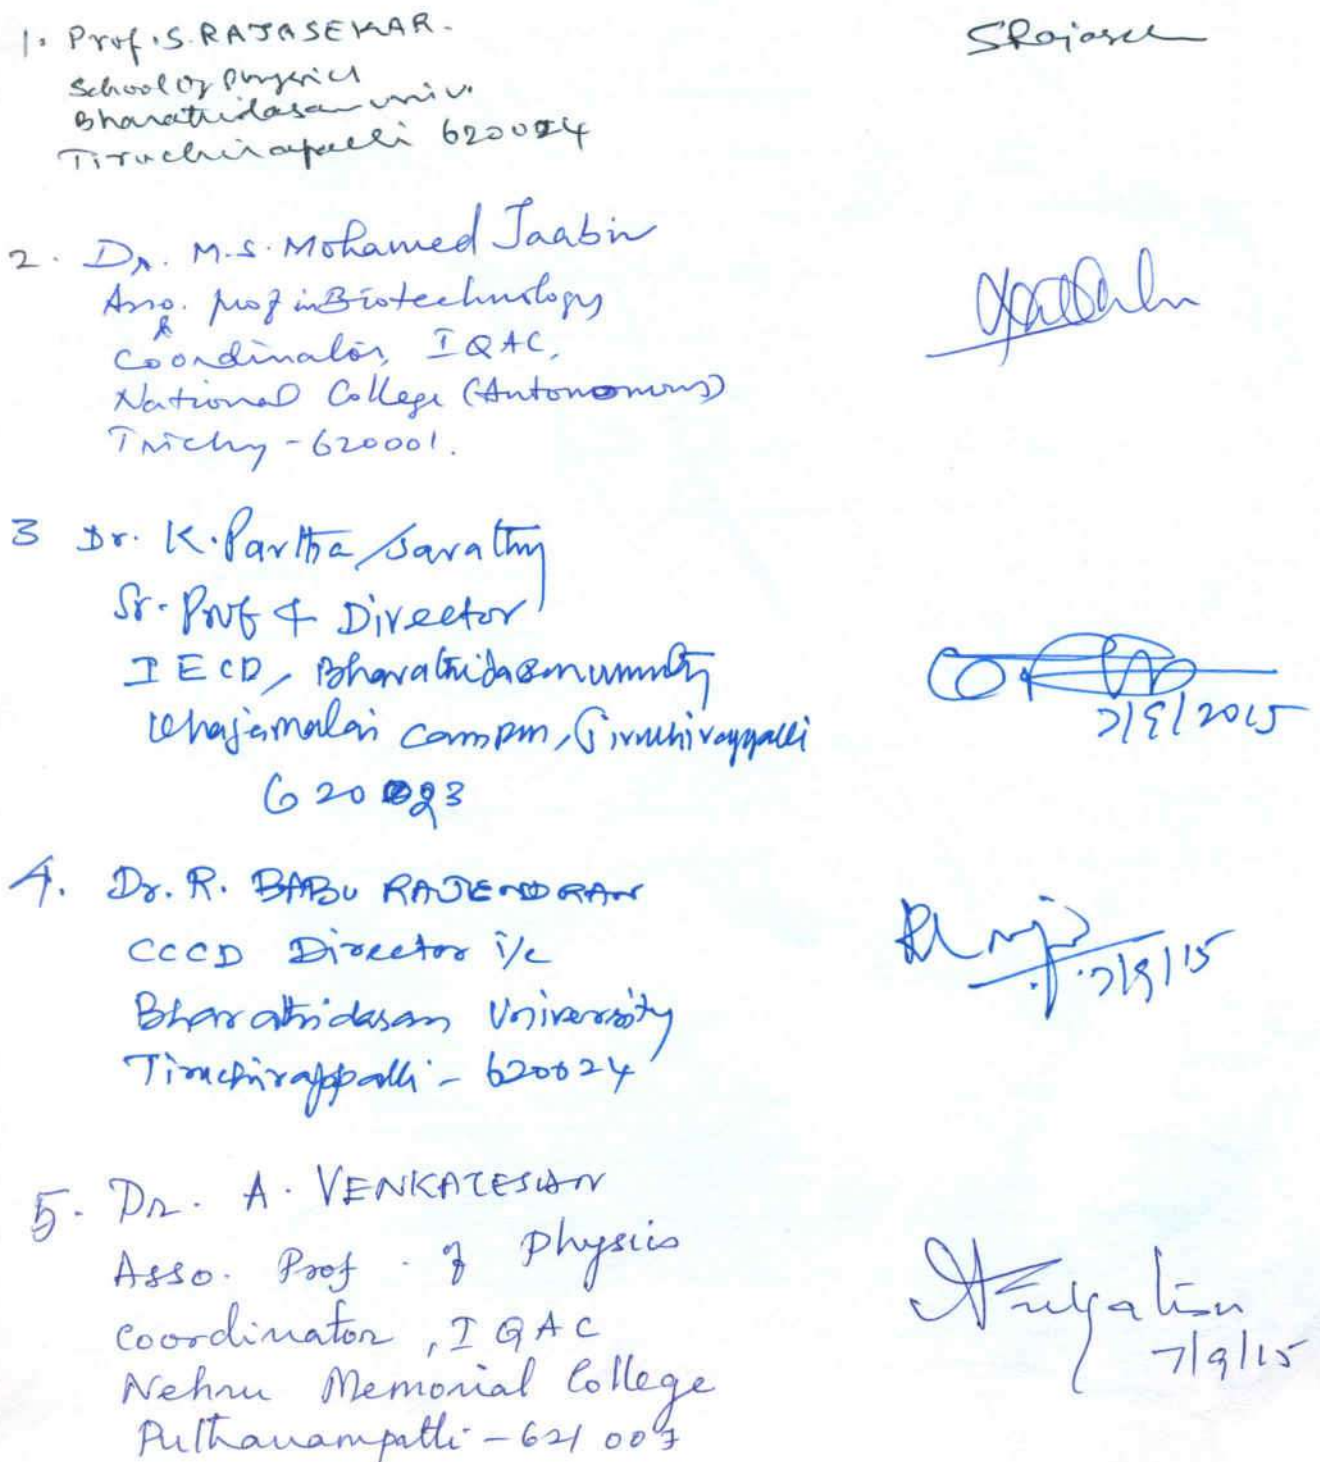 1. Prof. S. RAJASEKAR.
SRajasek
School of Physics
Bharathidasan univ.
Tiruchirapalli 620024
2. Dr. M.S. Mohamed Jaabir
Asso. prof in Biotechnology
&
Coordinator, IQAC,
National College (Autonomous)
Trichy - 620001.
3 Dr. K. Partha Sarathy
Sr. Prof & Director
IECD, Bharathidasan university
Khajamalai campus, Tiruchirappalli
7/9/2015
620023
4. Dr. R. BABU RAJENDRAN
CCCD Director i/c
7/9/15
Bharathidasan University
Tiruchirappalli - 620024
5. Dr. A. VENKATESAN
Asso. Prof. of Physics
Coordinator, IQAC
7/9/15
Nehru Memorial College
Puthanampatti - 621 007